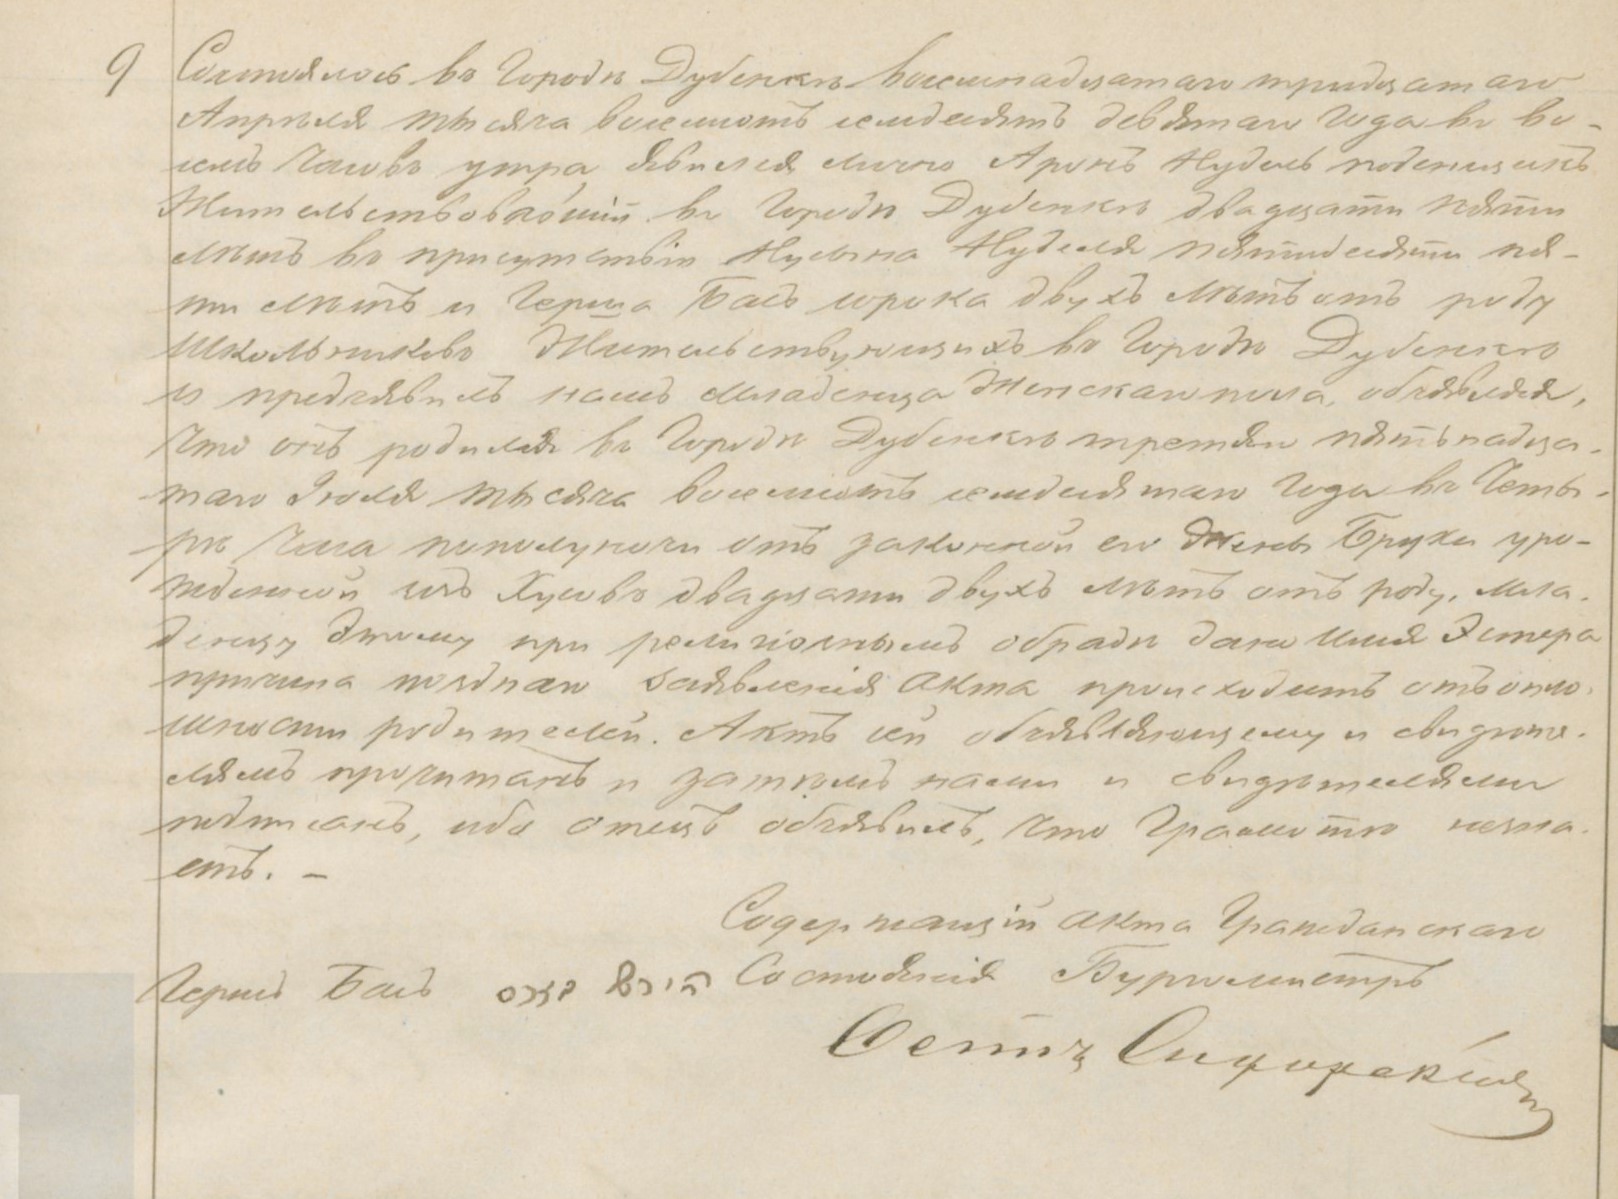 9 Состоялось въ Городѣ Дубенкѣ восемнадцатаго тридцатаго
Апрѣля тысяча восемьсотъ семдесятъ девятаго Года въ во-
семь Часовъ утра явился лично Аронъ Нудель поденщикъ
Жительствовавшій въ Городѣ Дубенкѣ двадцати пяти
лѣтъ въ присутствіи Нусына Нуделя пятидесяти пя-
ти лѣтъ и Герша Басъ сорока двухъ лѣтъ отъ роду
Школьниковъ Жительствующихъ въ Городѣ Дубенкѣ
и предъявилъ намъ Младенца Женскаго пола, объявляя,
Что онъ родился въ Городѣ Дубенкѣ третяго пятьнадца-
таго Іюля тысяча восемьсотъ семдесятаго Года въ Четы-
ри Часа пополуночи отъ законной его Жены Брухи уро-
жденной изъ двадцати двухъ лѣтъ отъ роду. Мла-
денцу Этому при религіозномъ обрядѣ дано Имя Эстера
причина поздняго заявленія Акта происходитъ отъ опло-
шности родителей. Актъ сей объявляющему и свидѣте-
лямъ прочитанъ и затѣмъ нами и свидѣтелями
подписанъ, ибо отецъ объявилъ, Что Грамотѣ незна-
етъ. —
Содержащій Акта Гражданскаго
Гершъ Басъ הירש Состоянія Бургомистръ